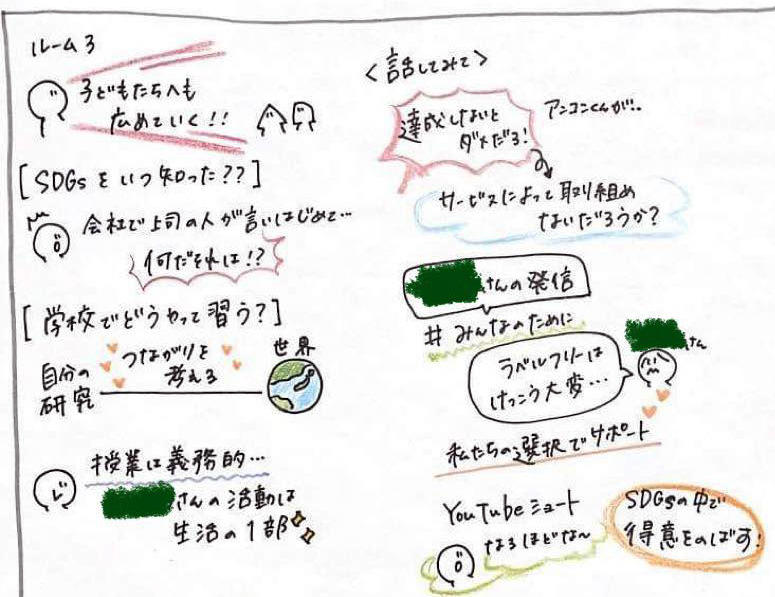 ルーム3
子どもたちへも
広めていく!!
[SDGsをいつ知った??]
会社で上司の人が言いはじめて…
何だそれは!?
[学校でどうやって習う?]
自分の
研究
つながりを
考える
世界
授業は義務的…
さんの活動は
生活の1部
<話してみて>
達成しないと
ダメだろ!
アンコンくんが!.
サービスによって取り組め
ないだろうか?
さんの発信
#みんなのために
さん
ラベルフリーは
けっこう大変…
私たちの選択でサポート
YouTubeミュート
なるほどな〜
SDGsの中で
得意をのばす!